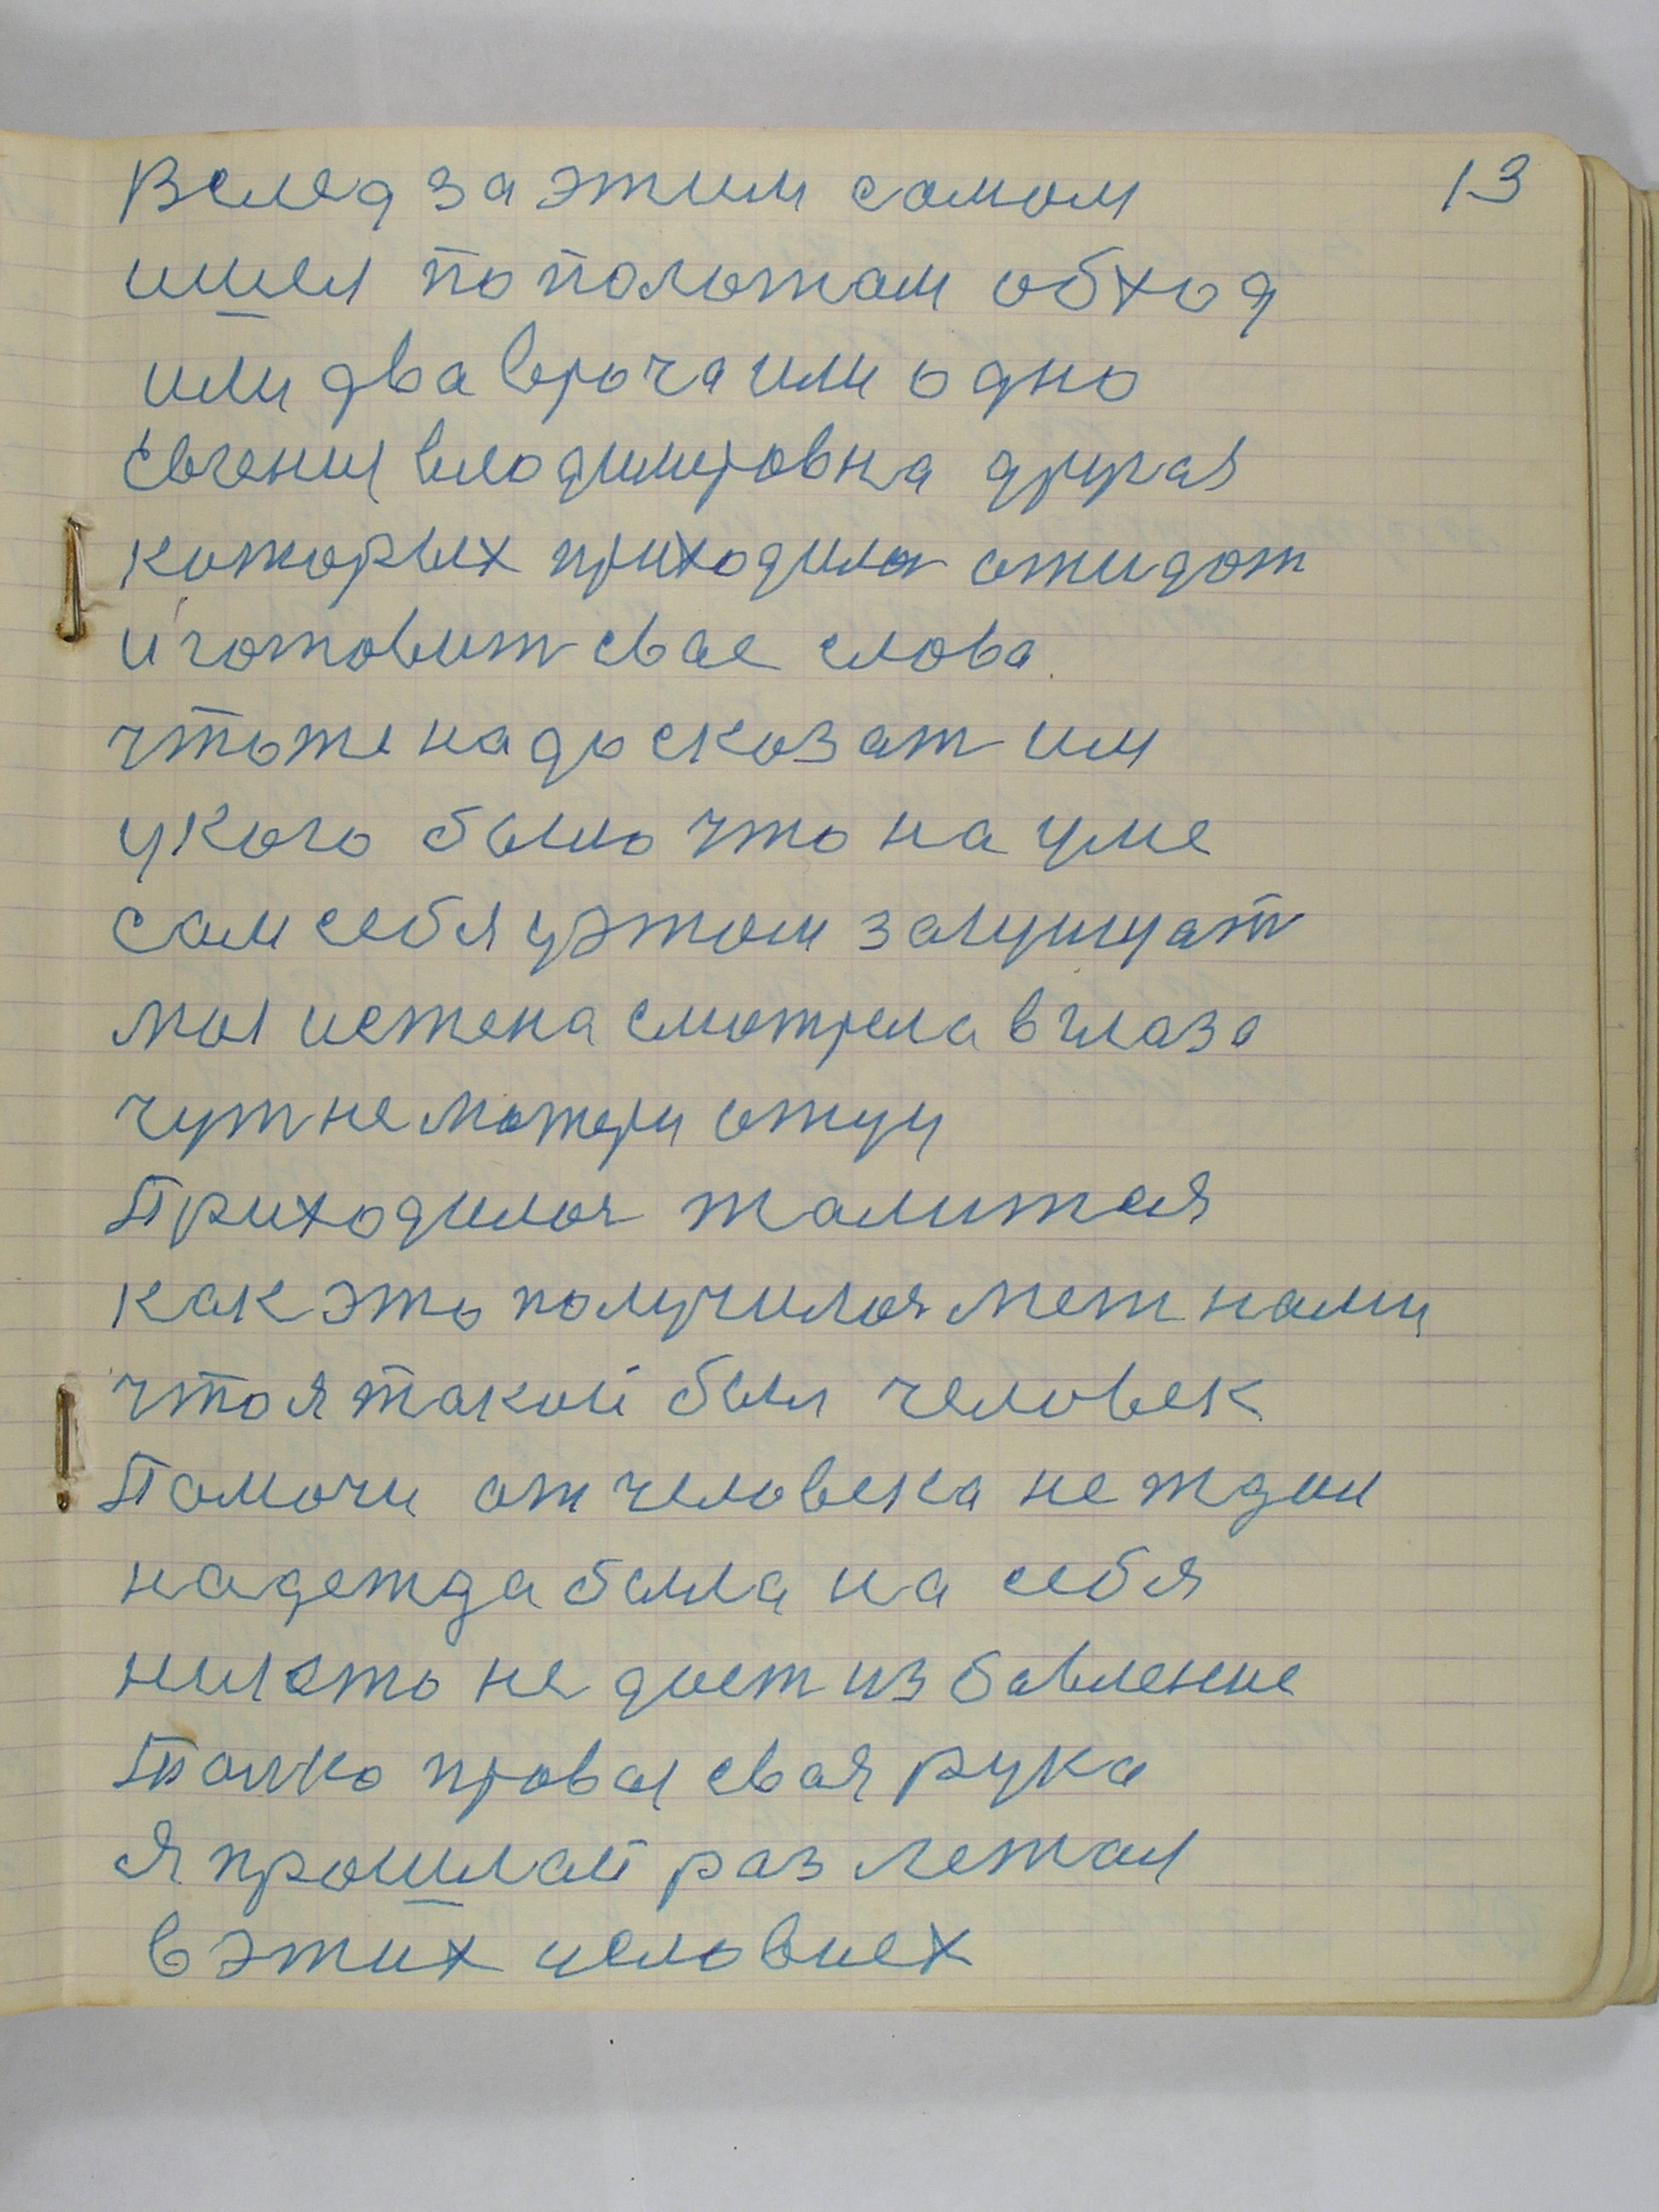 Вслед за этим самом 13
ишел по полотам обход
или два врача или одно
Евгения владимировна другая
которых приходилось ожидат
и готовит свае слова
чтоже надо сказат им
у кого было что на уме
сам себя у этом защищат
мол истена смотрела в глаза
чут не матери отцу
Приходилося жалится
как это получилося меж нами
что я такой был человек
Помочи от человека не ждал
надежда была на себя
нихто не дает избавление
Толко правая своя рука
Я прошлай раз лежал
в этих условиех